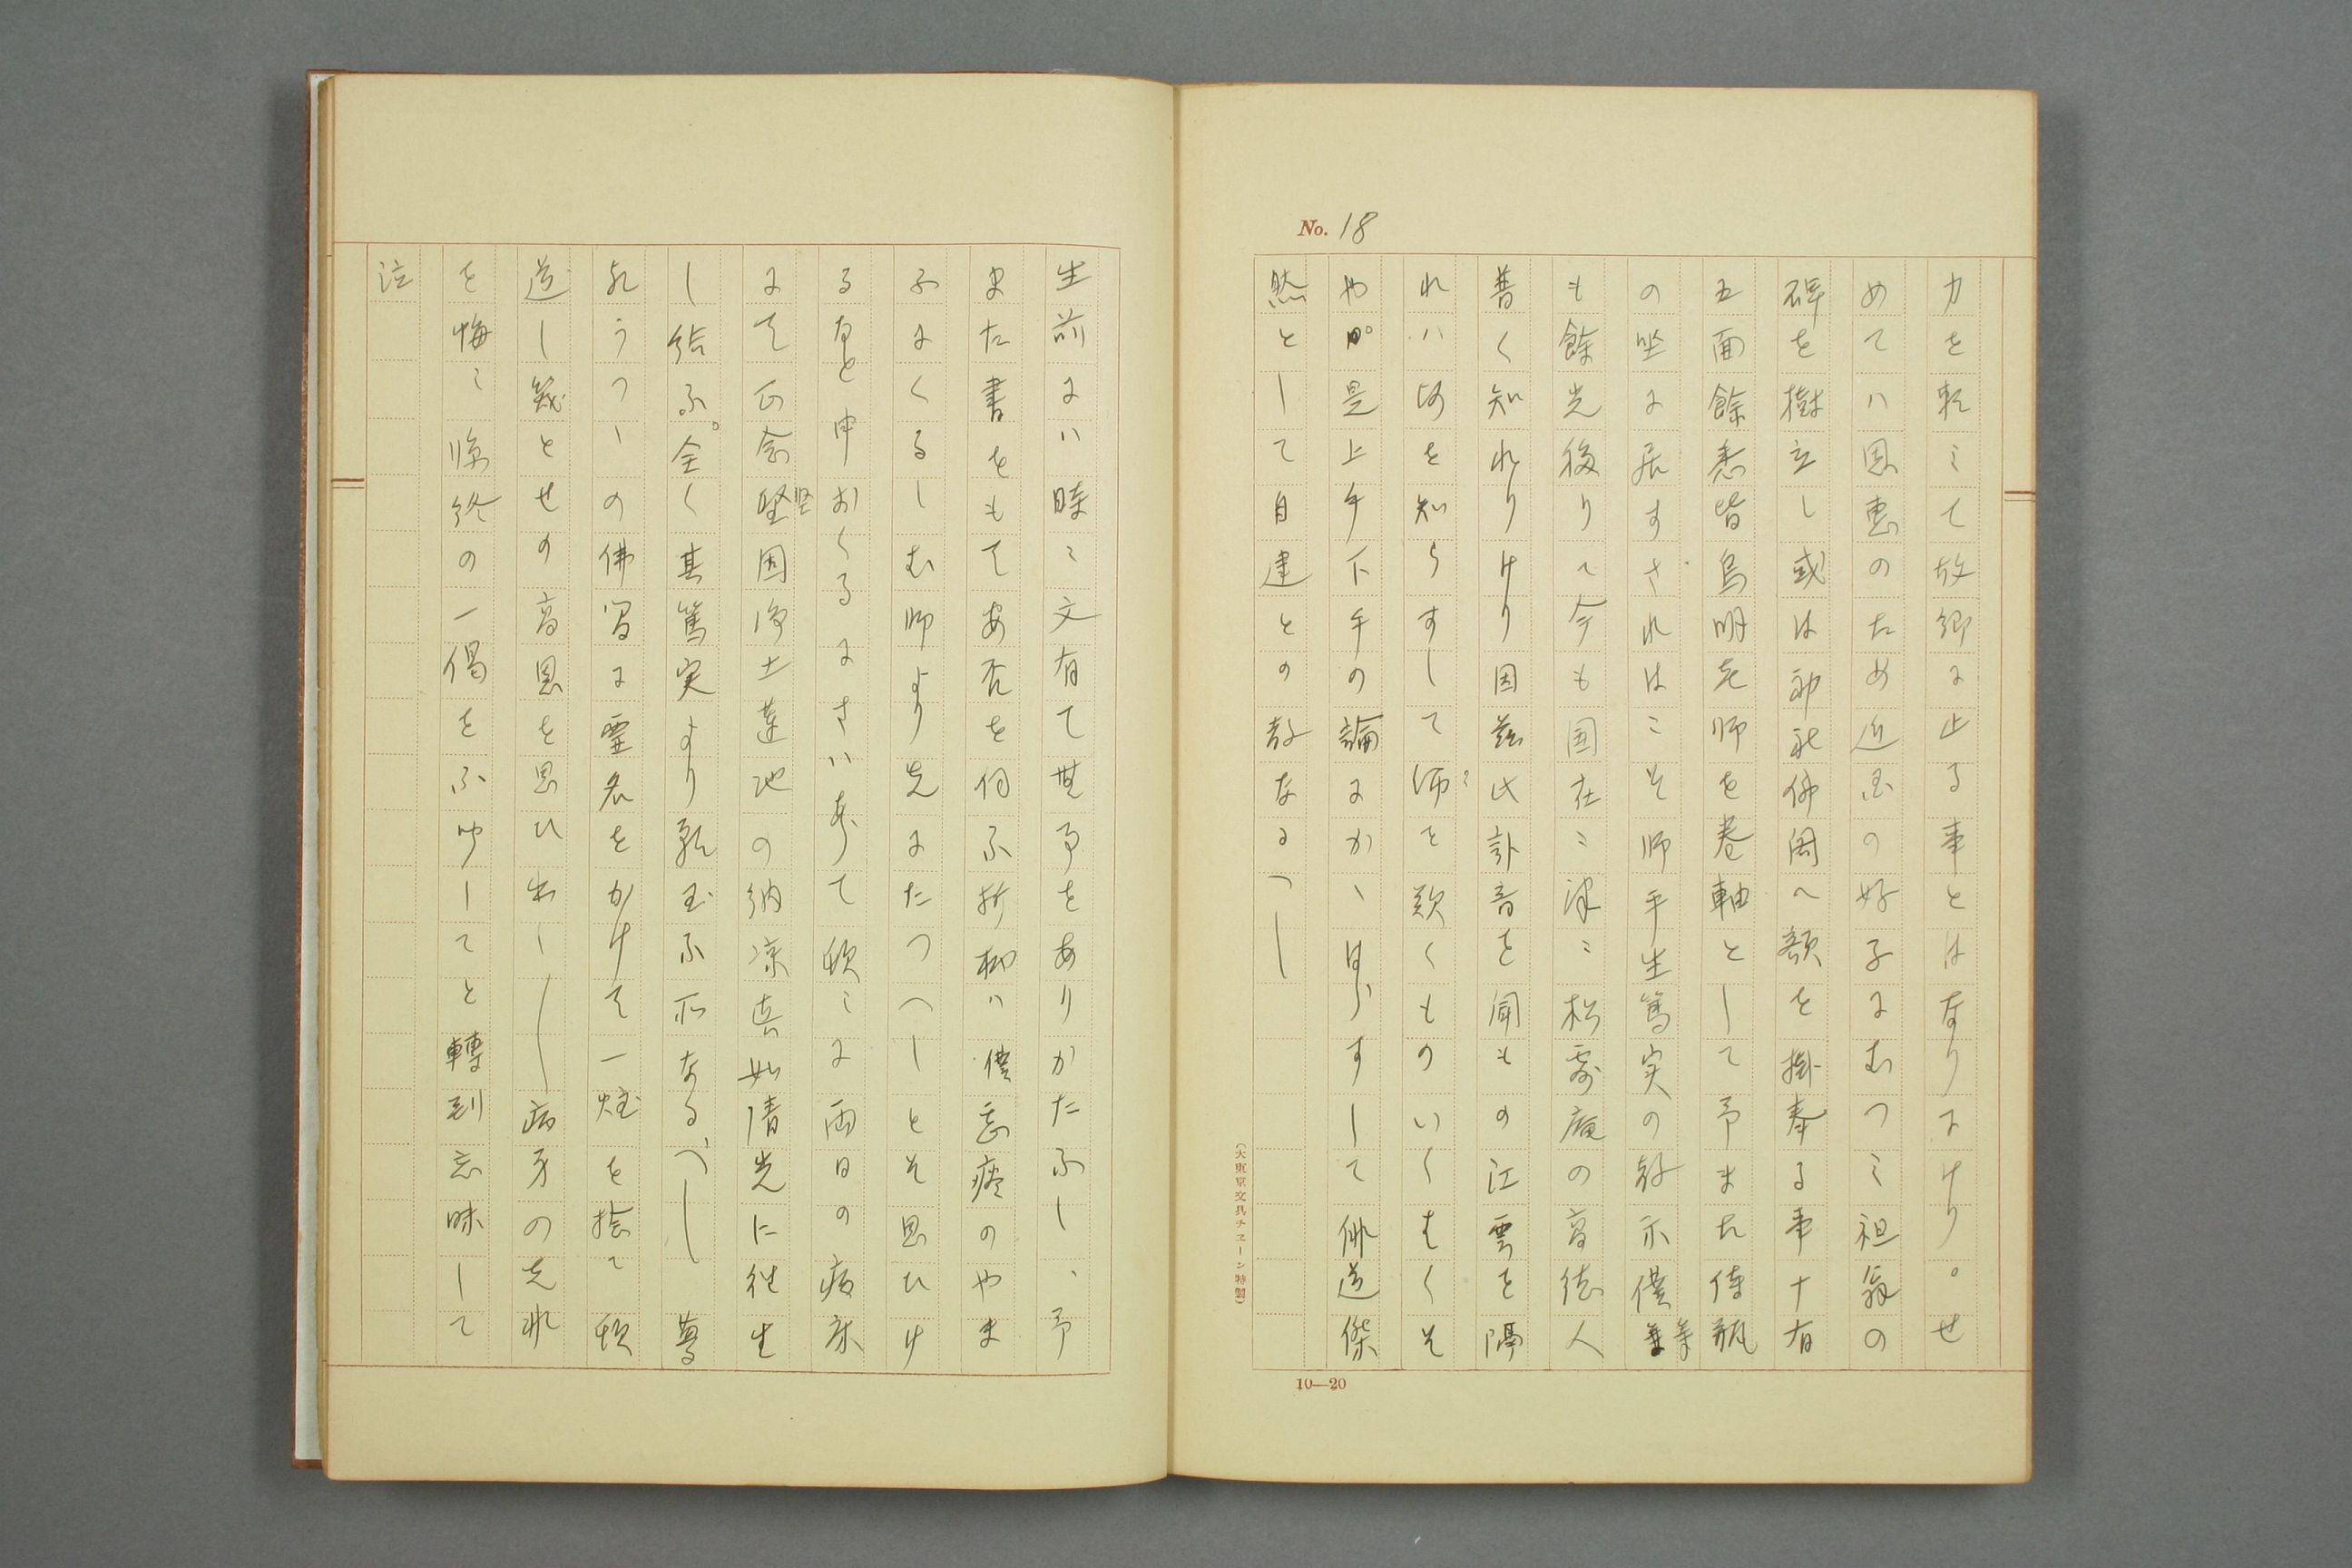 No. 18
力を転ミて故郷に止る事とはなりにけり。せ
めてハ恩恵のため近国の好子にむつミ祖翁の
碑を樹立し或は神社佛閣へ額を掛奉る事十有
五面餘悉皆烏明老師を巻軸として予また侍瓶
の坐に居すされはこそ師平生篤実の教示僕等
も餘光後りて今も国在ミ津ミ松露庵の高徳人
普く知れりけり因茲此訃音を聞もの江雲を隔
れハ何を知らすして師を歎くものいくもくそ
や是上手下手の論にかゝはらすして俳道傑
然として自建との故なるへし
(大東京文具チェーン特製)
10—20
生前にハ時ミ文有て其予をありかたふし、予
また書をもてあ否を伺ふ折柳ハ僕忘瘧のやま
ふにくるしむ師より先にたつへしとそ思ひけ
るなと申おくるにさハありて頓ミに両日の病床
にて正念堅固浄土蓮池の納凉真如清光に往生
し給ふ。全く其篤実より顕玉ふ所なるへし 尊
れうつゝの佛間に霊名をかけて一炷を捻て頓
道し幾とせの高恩を思ひ出し――病身の先れ
を悔ミ臨終の一偈をふゆしてと轉倒忘昧して
泣